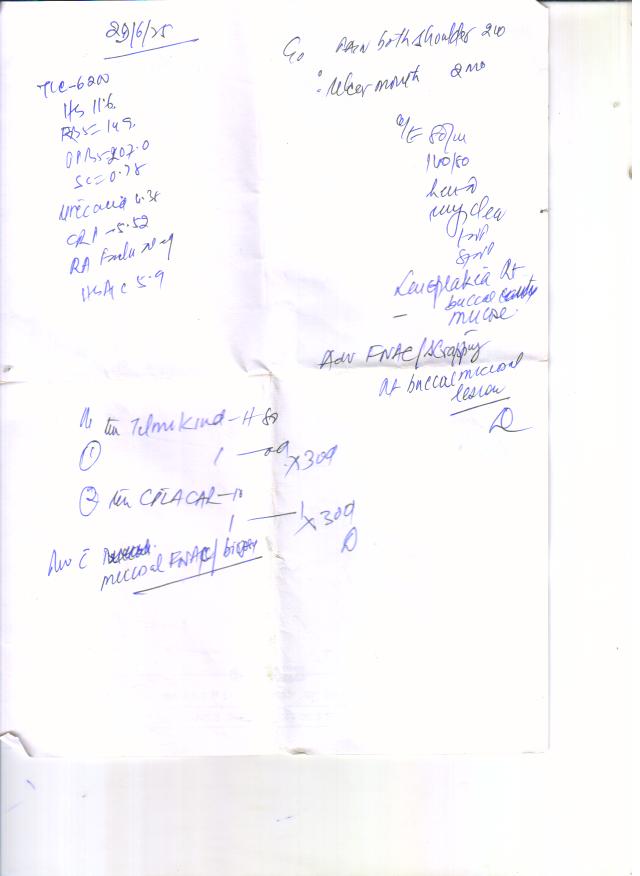 29/6/25
TLC-6200
Hb 11.6
RBS= 149
PPBS-207.0
Sc= 0.78
CRP-5.52
RA Factor Neg
HbA1c 5.9
C/o Pain both shoulder
: Ulcer mouth 2 mo
O/E 80/m
160/80
Leucoplakia Rt
buccal
mucosa
Adv FNAC/scrapping
Rt buccal mucosal
lesion
tab Telmikind-H 80
① 1 — x30d
② tab CILACAR-10
1 — 1 x30d
Rev c
mucosal FNAC/biopsy